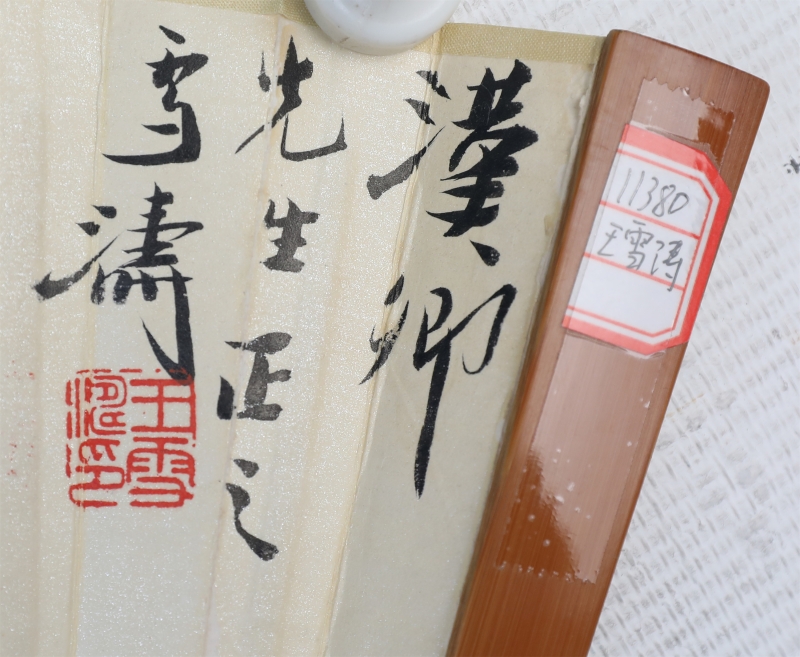 漢卿
先生正之
雪濤
王雪濤印
11380
王雪涛